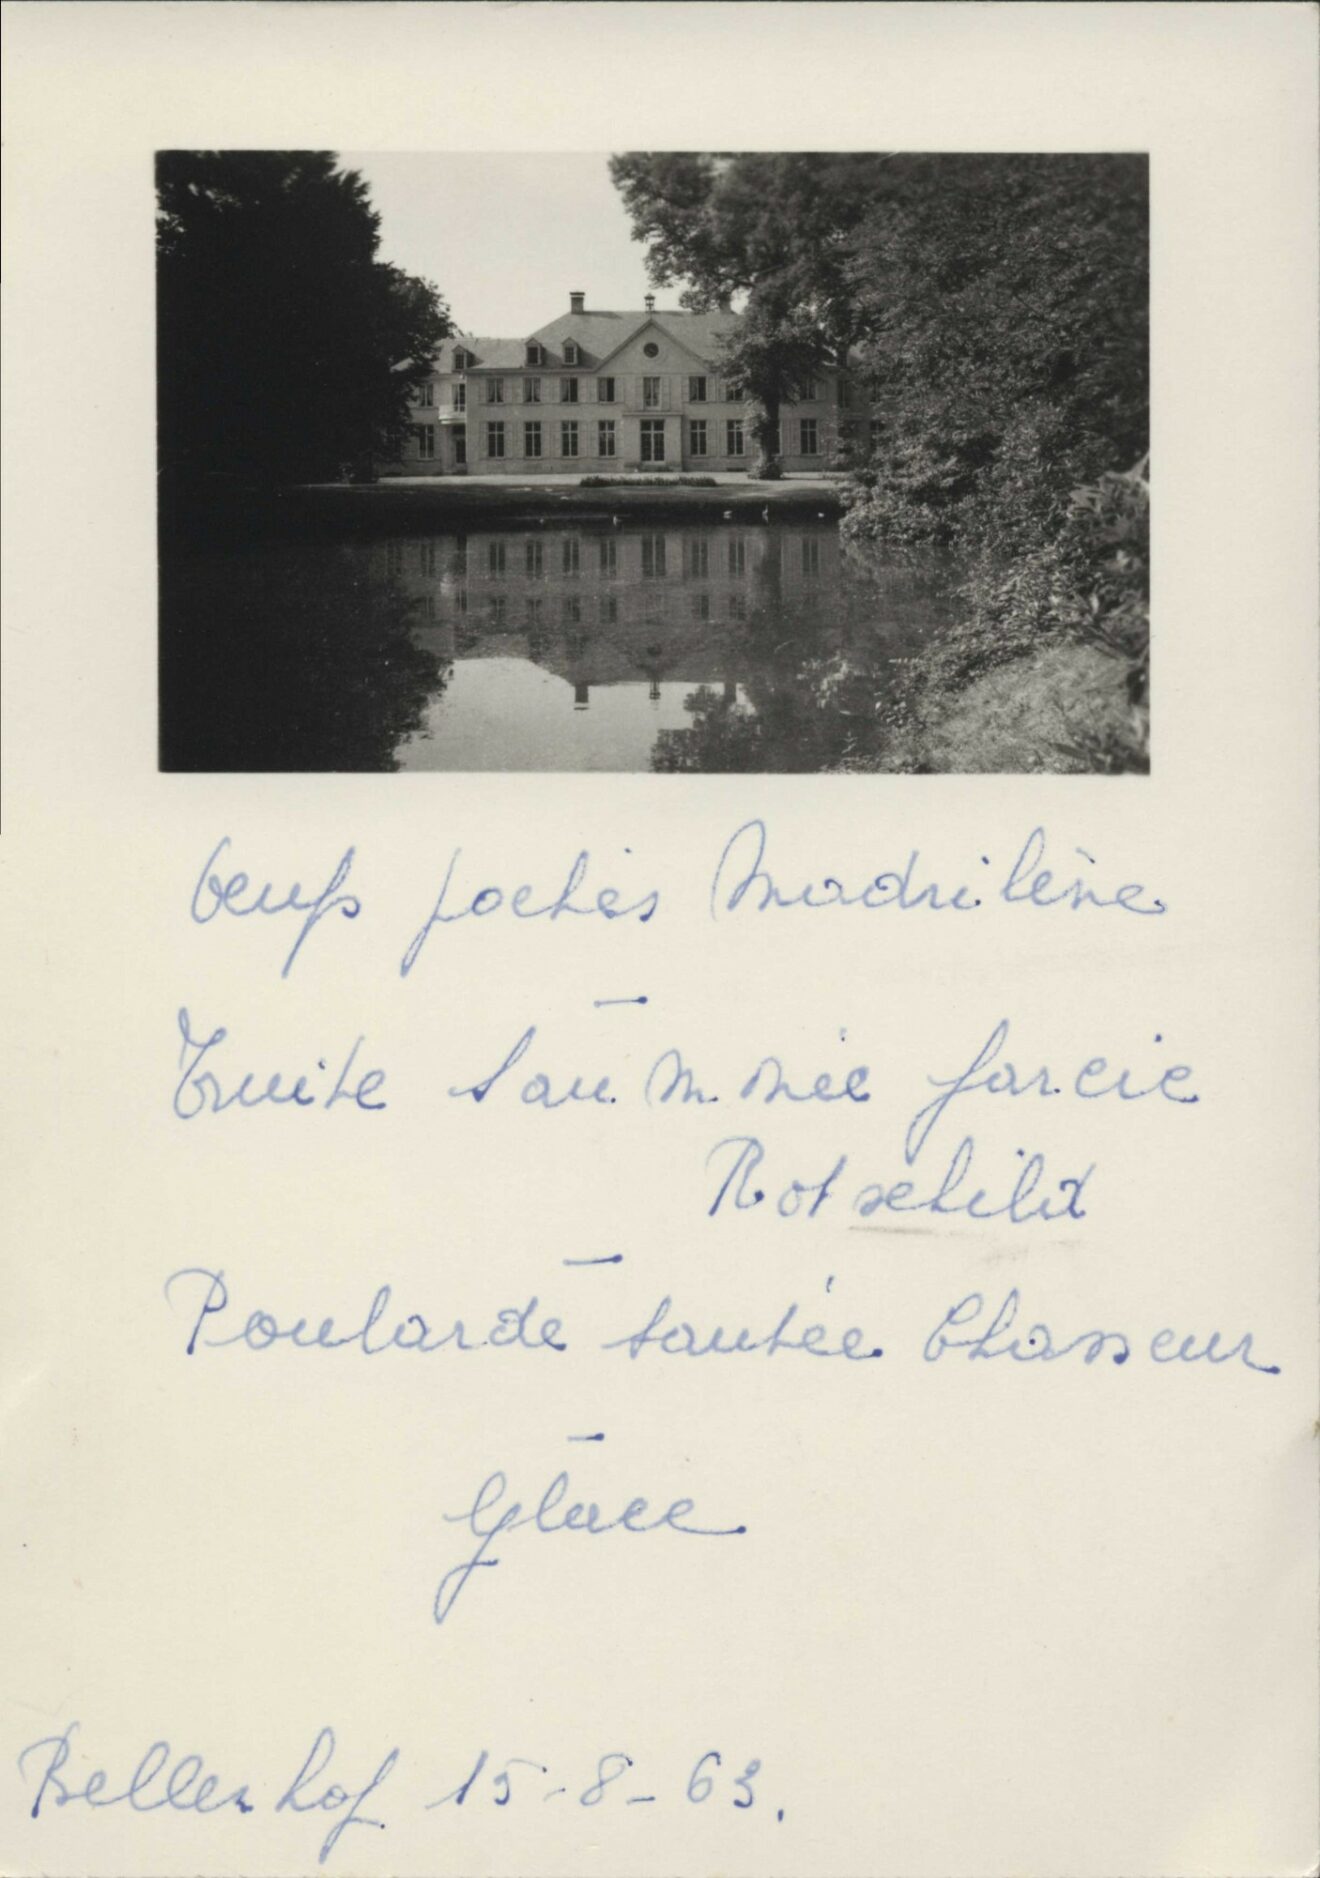 Oeufs pochés Madrilène
—
Truite Saumonée farcie
Rotschild
—
Poularde sautée Chasseur
—
Glace
Bellenhof 15-8-63.